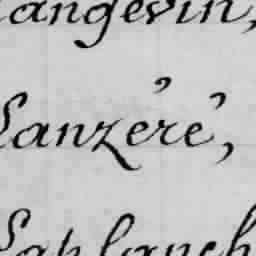 Langevin,
Lanzéré,
Laplanch